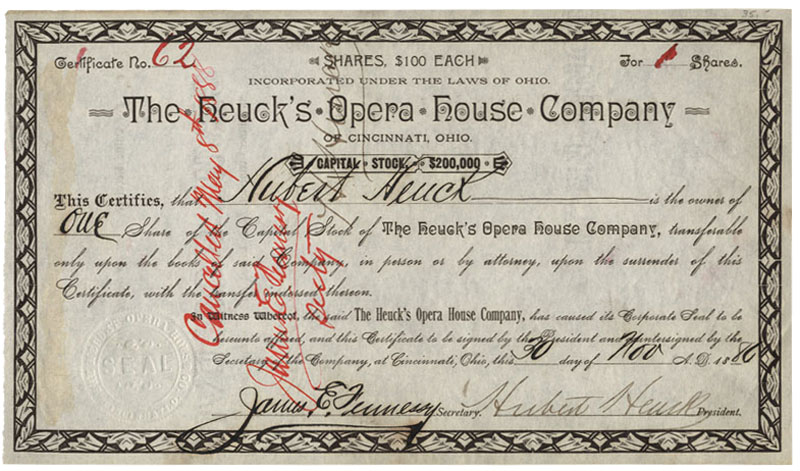 35.
Certificate No. 62
SHARES, $100 EACH
For 1 Shares.
INCORPORATED UNDER THE LAWS OF OHIO.
The Heuck's Opera House Company
OF CINCINNATI, OHIO.
CAPITAL STOCK $200,000
This Certifies, that Hubert Heuck is the owner of
One Share of the Capital Stock of The Heuck's Opera House Company, transferable
only upon the books of said Company, in person or by attorney, upon the surrender of this
Certificate, with the transfer endorsed thereon.
In Witness Whereof, the said The Heuck's Opera House Company, has caused its Corporate Seal to be
hereunto affixed, and this Certificate to be signed by the President and countersigned by the
Secretary of the Company, at Cincinnati, Ohio, this 30 day of Nov A.D. 1886
James E. Fennessy Secretary. Hubert Heuck President.
SEAL
Cancelled May 8th 888
James E. Fennessy
Secty